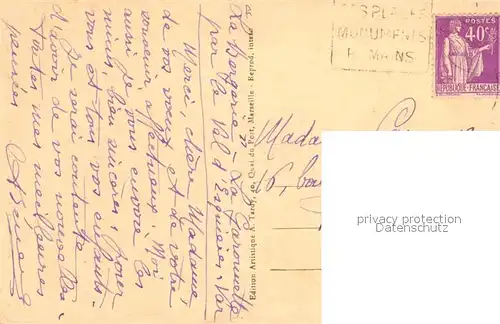 La Bergerie - La Garonnette
par le Val d'Esquières. Var
Merci, chère Madame,
de vos vœux et de votre
souvenir affectueux. Moi
aussi je vous envoie les
miens, bien sincères, pour
vous et tous vos enfants.
Je serai contente
d'avoir de vos nouvelles.
Toutes mes meilleures
pensées
Edition Artistique A. Tardy, 40, Quai du Port, Marseille - Reprod. interdite
Madame
16,
MONUMENTS
ROMAINS
POSTES
40c
RÉPUBLIQUE FRANÇAISE
privacy protection
copyright